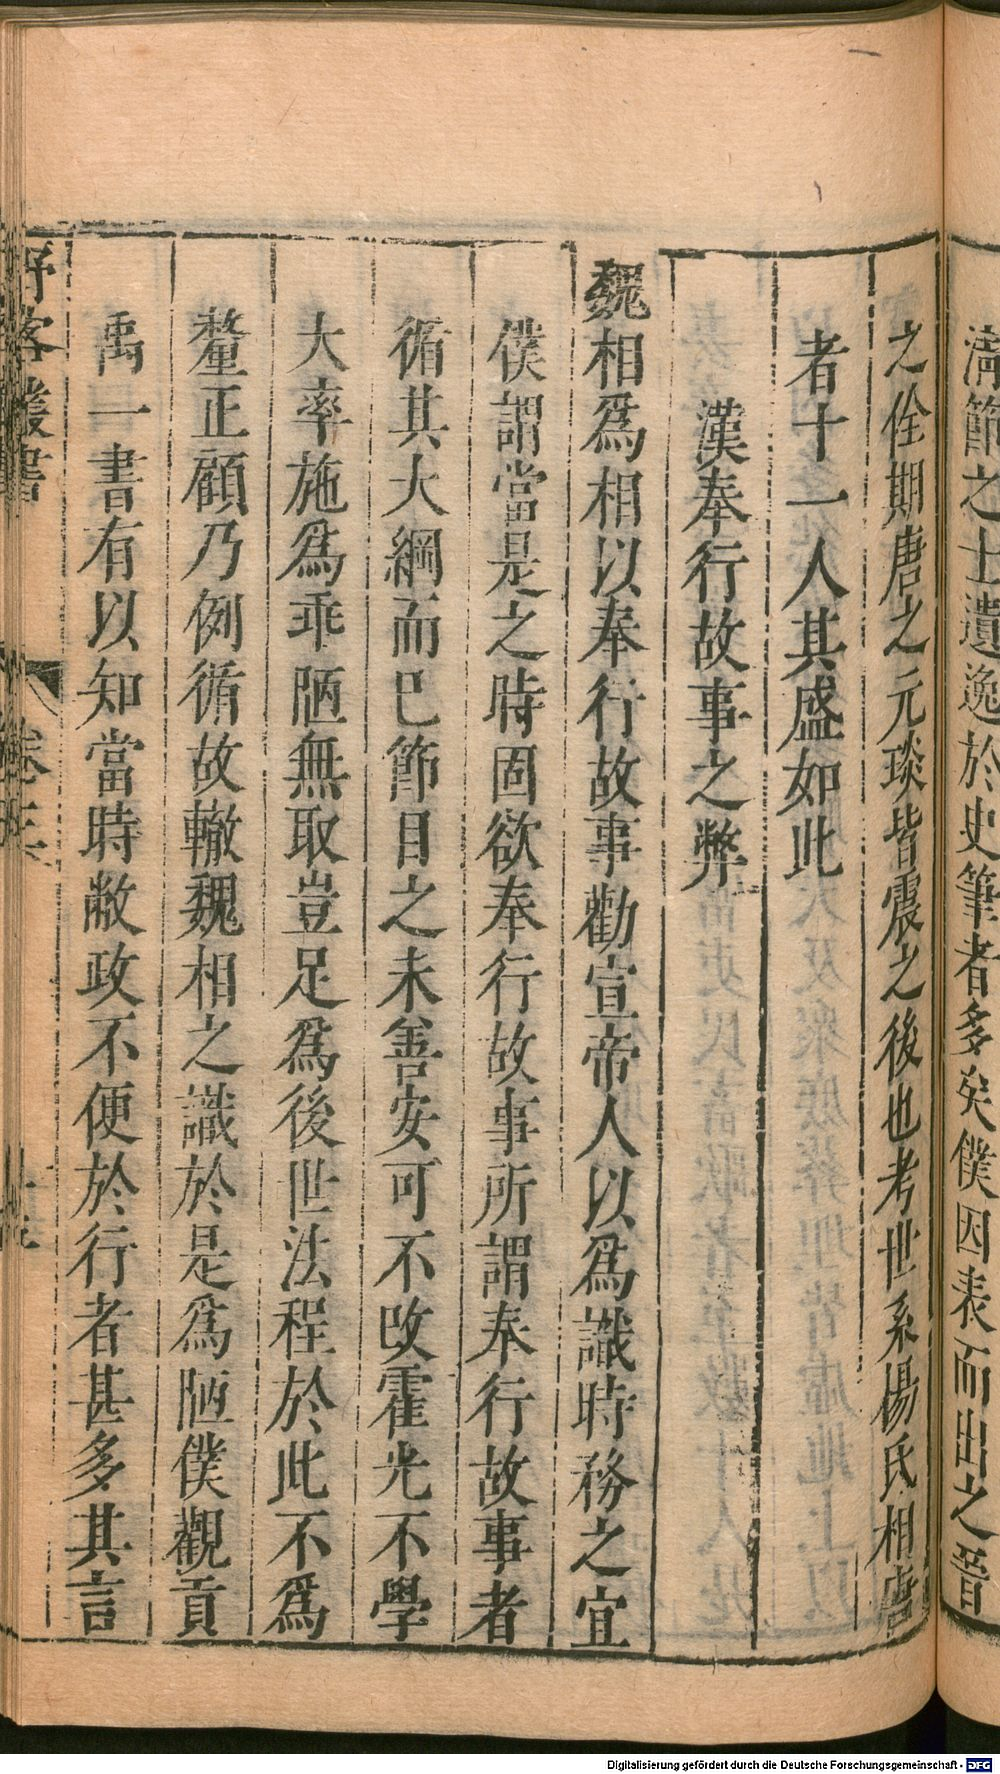 清節之士遺逸於史筆者多矣僕因表而出之晉
之佺期唐之元琰皆震之後也考世系楊氏相唐
者十一人其盛如此
漢奉行故事之弊
魏相爲相以奉行故事勸宣帝人以爲識時務之宜
僕謂當是之時固欲奉行故事所謂奉行故事者
循其大綱而已節目之未善安可不改霍光不學
大率施爲乖陋無取豈足爲後世法程於此不爲
釐正顧乃例循故轍魏相之識於是爲陋僕觀貢
禹一書有以知當時敝政不便於行者甚多其言
野客叢書
卷
Digitalisierung gefördert durch die Deutsche Forschungsgemeinschaft - DFG